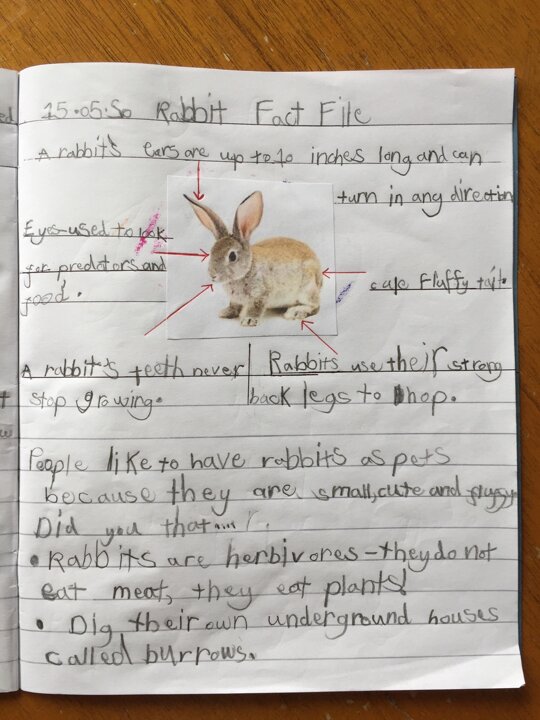 15.05.20 Rabbit Fact File
A rabbit's ears are up to 10 inches long and can
turn in any direction
Eyes-used to look
for predators and
food.
cute Fluffy tail.
A rabbit's teeth never
stop growing.
Rabbits use their strong
back legs to hop.
People like to have rabbits as pets
because they are small, cute and fluffy
Did you that....
• Rabbits are herbivores-they do not
eat meat, they eat plants!
• Dig their own underground houses
called burrows.